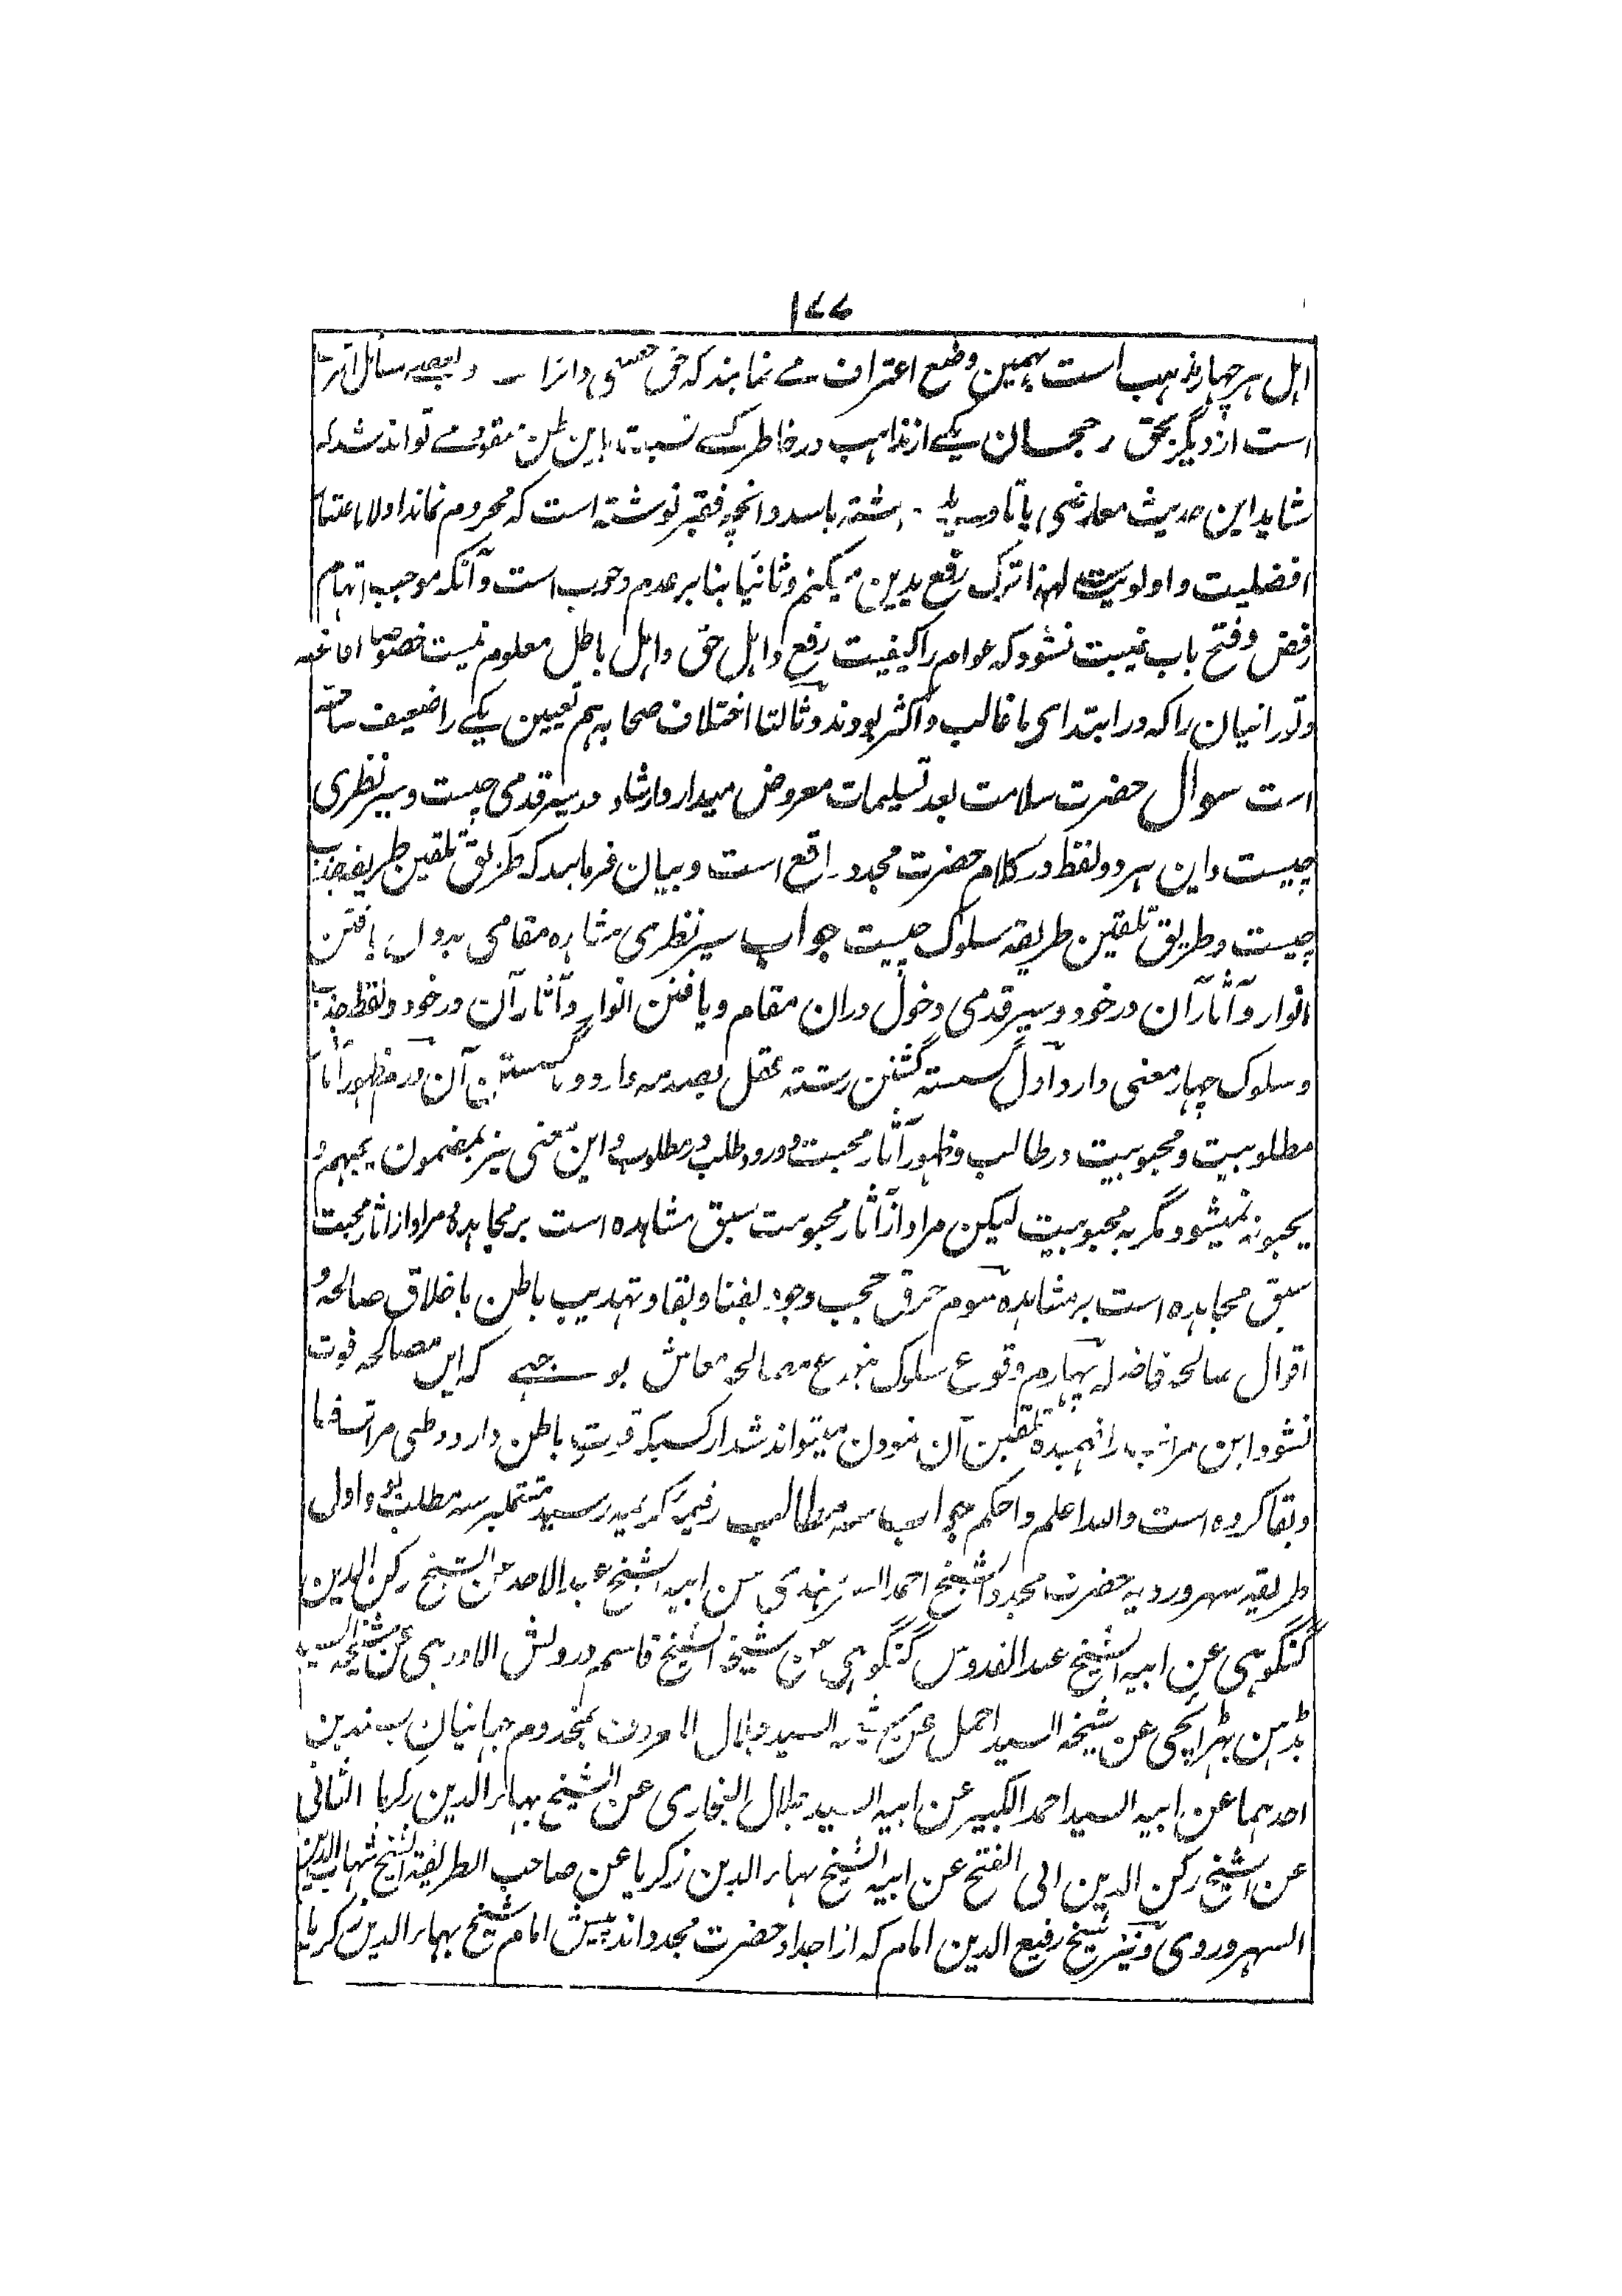 ۱۷۷
اہل ہر چہار مذہب است ہمین وضع اعتراف مے نمایند کہ حق دائر است
است از دیگر بحق رجحان یکے از مذاہب در خاطر کسے نسبت باین ظن متفوت مے تواند شد کہ
شاید این حدیث معارضی یا تاویلے داشتہ باشد وانچہ فقیر نوشتہ است کہ محروم نماند اولا باعتبار
افضلیت و اولویت لہذا ترک رفع یدین میکنم و ثانیا بنا بر عدم وجوب است و آنکہ موجب اتہام
رفض و فتح باب غیبت نشود کہ عوام را کیفیت رفع و اہل حق و اہل باطل معلوم نیست خصوصا افاغنہ
و تورانیان را کہ در ابتدای ما غالب و اکثر بودند و ثالثا اختلاف صحابہ ہم تعیین یکے را ضعیف ساختہ
است سوال حضرت سلامت بعد تسلیمات معروض میدارد ارشاد سیر قدمی چیست و سیر نظری
چیست و این ہر دو لفظ در کلام حضرت مجدد واقع است و بیان فرمایند کہ طریق تلقین طریقہ جذب
چیست و طریق تلقین طریقہ سلوک چیست جواب سیر نظری مشاہدہ مقامی بدون یافتن
انوار و آثار آن در خود و سیر قدمی دخول دران مقام و یافتن انوار و آثار آن در خود و لفظ جذب
و سلوک چہار معنی دارد اول گسستہ گشتن رشتہ عقل بصدمہ وارد و نا گسستن آن دوم ظہور آثار
مطلوبیت و محبوبیت در طالب و ظہور آثار محبت و ورود طلب در مطلوب و این معنی نیز بمضمون یحبہم و
یحبونہ نمیشود مگر بہ محبوبیت لیکن مراد از آثار محبوبیت سبق مشاہدہ است بر مجاہدہ و مراد از آثار محبت
سبق مجاہدہ است بر مشاہدہ سوم خرق حجب وجود بفنا و بقا و تہذیب باطن باخلاق صالحہ و
اقوال صالحہ فاضلہ چہارم وقوع سلوک مصالحہ معاش بوجہے کہ این مصالحہ فوت
نشود این مراتب را فہمیدہ تلقین آن نمودن میتواند شد از کسیکہ قوت باطن دارد و طی مراتب فنا
و بقا کردہ است واللہ اعلم و احکم جواب سہ مطالب رقیمہ کریمہ رسید مشتملبر سہ مطلب بود اول
طریقہ سہروردیہ حضرت مجدد الشیخ احمد السرہندی عن ابیہ الشیخ عبد الاحد عن الشیخ رکن الدین
گنگوہی عن ابیہ الشیخ عبد القدوس گنگوہی عن شیخہ الشیخ قاسم درویش الاودہی عن شیخہ السید
بڈہن بہرائچی عن شیخہ السید اجمل عن شیخہ السید جلال المعروف بمخدوم جہانیان بسندین
احدہما عن ابیہ السید احمد الکبیر عن ابیہ السید جلال البخاری عن الشیخ بہاء الدین زکریا الثانی
عن الشیخ رکن الدین ابی الفتح عن ابیہ الشیخ بہاء الدین زکریا عن صاحب الطریقہ الشیخ شہاب الدین
السہروردی و نیز شیخ رفیع الدین امام کہ از اجداد حضرت مجدد اند پیش امام شیخ بہاء الدین زکریا